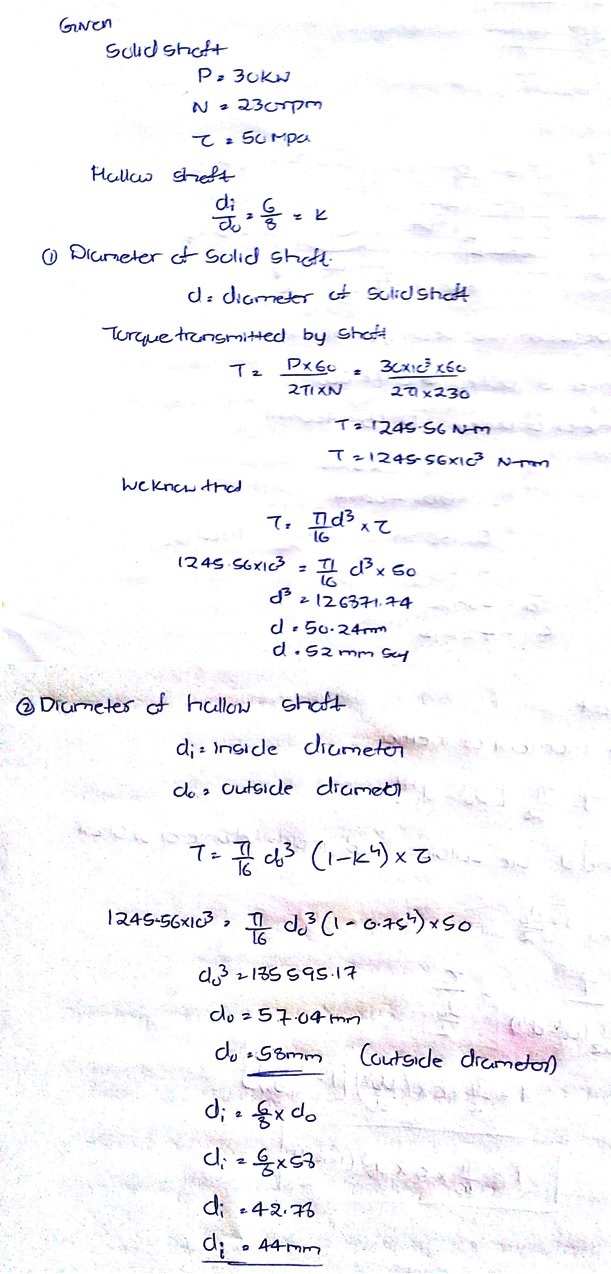 Given
Solid shaft
P = 30kW
N = 230rpm
τ = 50 Mpa
Hallow shaft
di/do = 6/8 = k
① Diameter of solid shaft.
d = diameter of solid shaft
Torque transmitted by shaft
T = P×60/2π×N = 30×10³×60/2π×230
T = 1245.56 N-m
T = 1245.56×10³ N-mm
We know that
T = π/16 d³ × τ
1245.56×10³ = π/16 d³ × 50
d³ = 126371.74
d = 50.24mm
d = 52 mm say
② Diameter of hallow shaft
di = inside diameter
do = outside diameter
T = π/16 do³ (1-k⁴) × τ
1245.56×10³ = π/16 do³ (1-0.75⁴) × 50
do³ = 185595.17
do = 57.04mm
do = 58mm (outside diameter)
di = 6/8 × do
di = 6/8 × 58
di = 42.78
di = 44mm